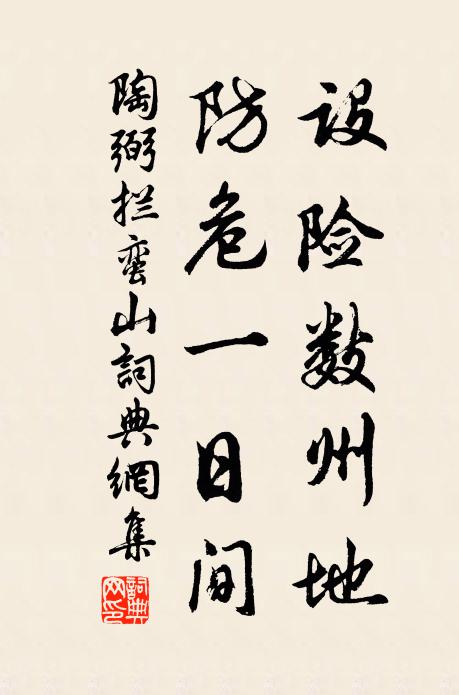 设险数州地
防危一日间
陶弼拦蛮山詞典網集
詞典網印